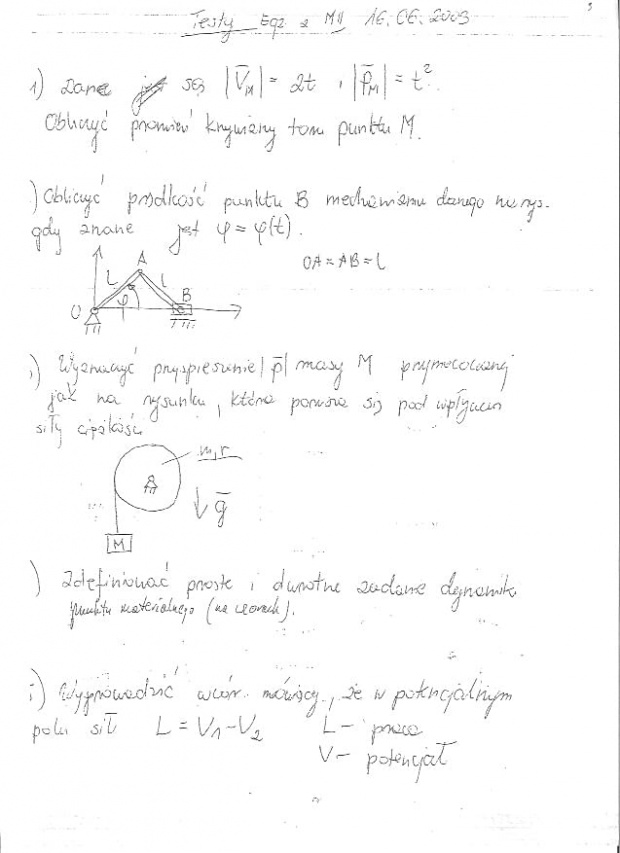 Testy Egz z MII 16.06.2009
1) Dane są |V̄_M| = 2t , |p̄_M| = t²
Obliczyć promień krzywizny toru punktu M.
) Obliczyć prędkość punktu B mechanizmu danego na rys.
gdy znane jest φ = φ(t).
OA = AB = l
A
L
l
φ
B
O
) Wyznaczyć przyspieszenie |p̄| masy M przymocowanej
jak na rysunku, która porusza się pod wpływem
siły ciężkości
m, r
ḡ
M
) Zdefiniować proste i odwrotne zadanie dynamiki
punktu materialnego (na wzorach).
) Wyprowadzić wzór mówiący, że w potencjalnym
polu sił L = V₁ - V₂ L - praca
V - potencjał